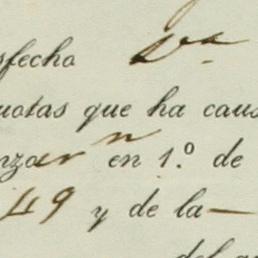 sfecho Dva
uotas que ha caus
nzaron en 1.º de
49 y de la—
del a